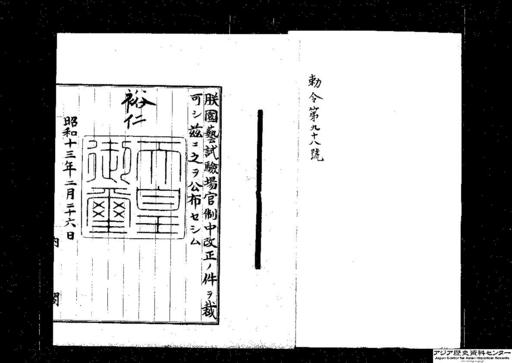 勅令第九十八號
朕園藝試驗場官制中改正ノ件ヲ裁
可シ茲ニ之ヲ公布セシム
裕仁
天皇
御璽
昭和十三年二月二十六日
内閣
アジア歴史資料センター
Japan Center for Asian Historical Records